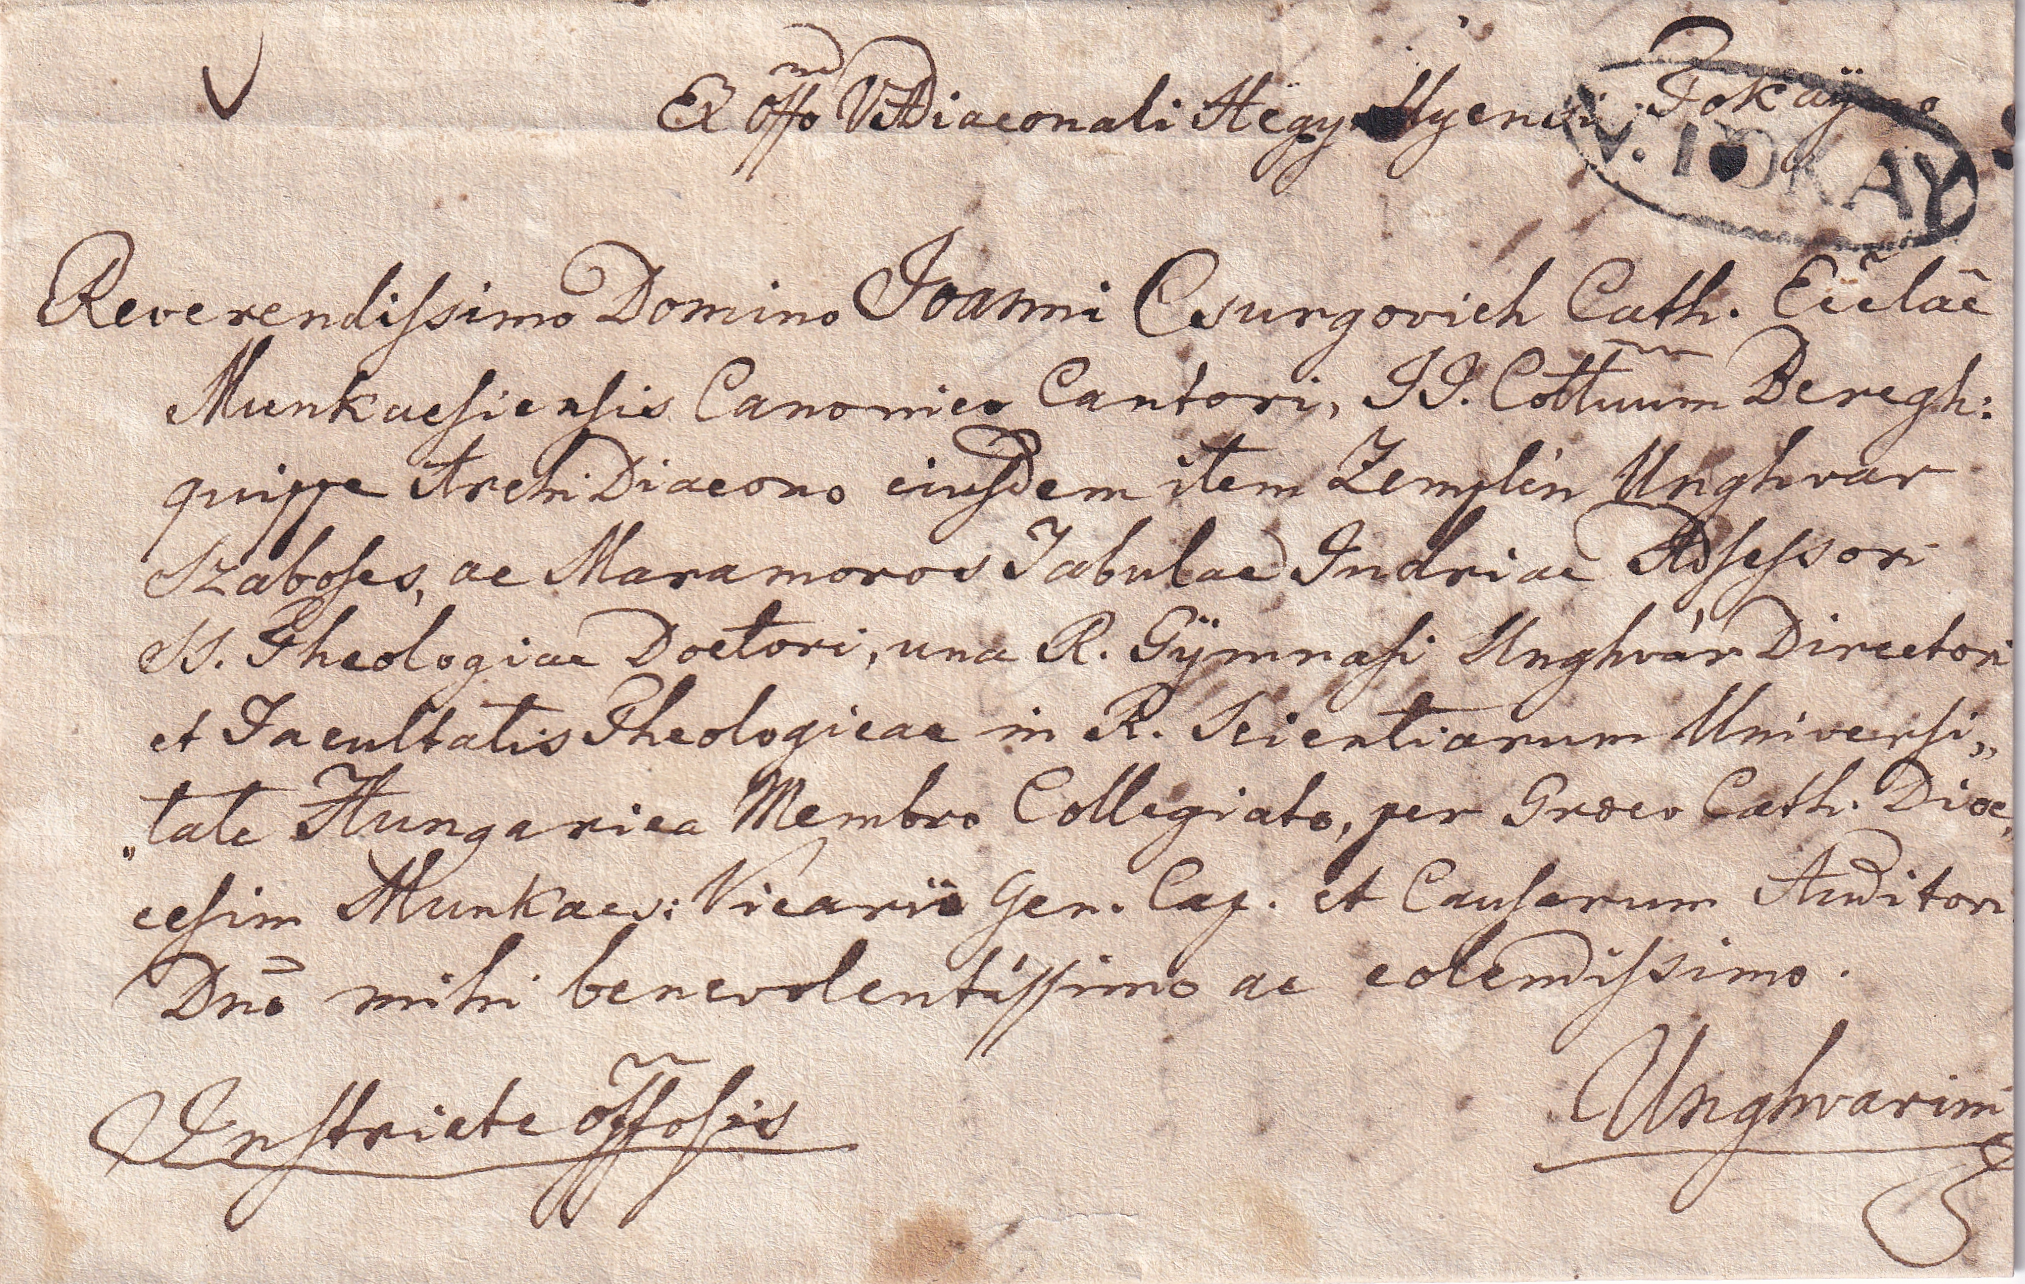 Ex offo VADiaconali Hegyallyensi Tokay
V. TOKAY
Reverendissimo Domino Joanni Csurgovich Cath. Ecclae
Munkacsiensis Canonico Cantori, II. Cottuum Beregh:
quippe ArchiDiacono eiusdem item Zemplin Unghvar
Szabolcs, ac Maramoros Tabulae Indriae Adsessori
SS. Theologiae Doctori, una R. Gÿmnasi Unghvár Directori
et Facultatis Theologicae in R. Scientiarum Universi„
„tate Hungarica Membro Collegiato, per Graeco Cath. Dioe„
cesim Munkacs: Vicarii Gen. Cap. et Causarum Auditori
Dno mihi benevolentissimo ac colendissimo.
Instricte offosis
Unghvarini